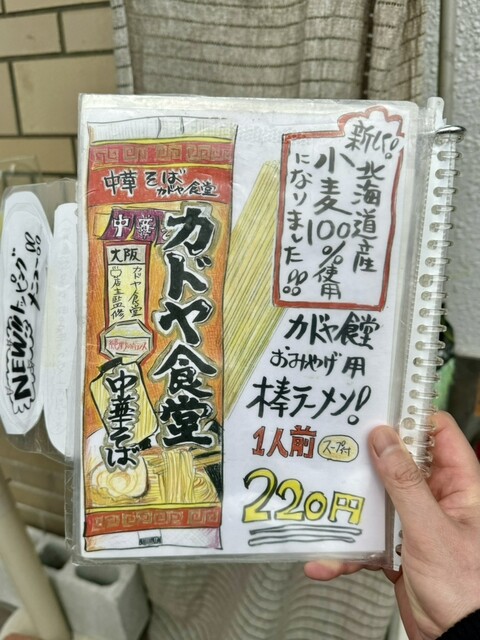 新しく!
北海道産
小麦100%使用
になりました!!
中華そば
カドヤ食堂
中華そば
カドヤ食堂
大阪
カドヤ食堂
店主監修
中華そば
カドヤ食堂
おみやげ用
棒ラーメン!
1人前
スープ付
220円
NEW!!
トッピング
メニュー!!